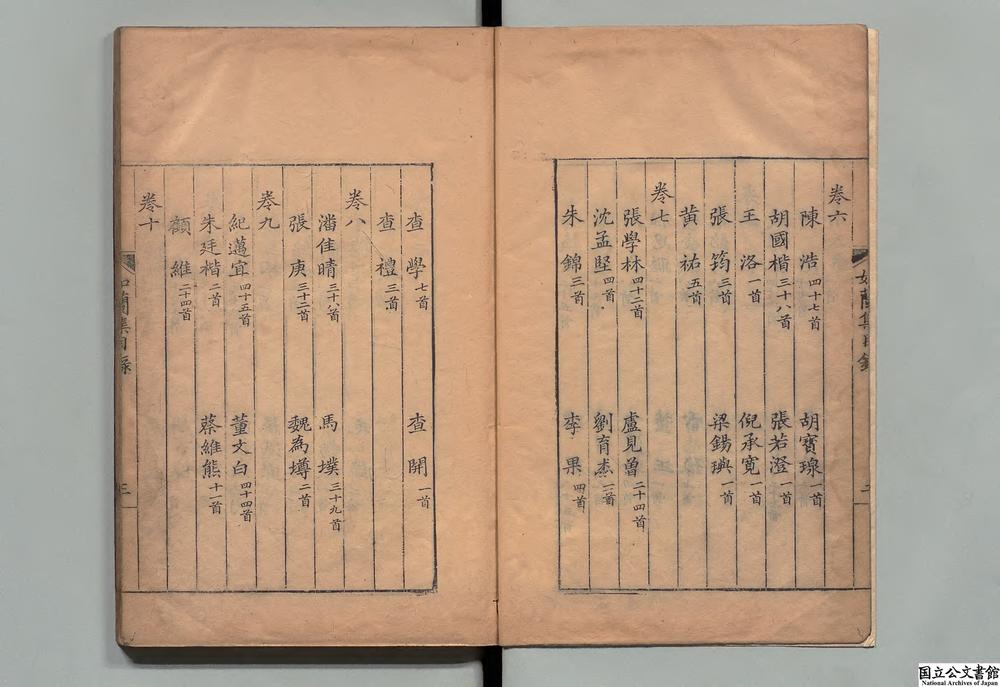 如蘭集目錄
卷六
陳浩 四十七首 胡寶瑔 一首
胡國楷 三十八首 張若澄 一首
王洛 一首 倪承寬 一首
張筠 三首 梁錫璵 一首
黄祐 五首
卷七
張學林 四十二首 盧見曾 二十四首
沈孟堅 四首 劉育杰 二首
朱錦 三首 李果 四首
查學 七首 查開 一首
查禮 三首
卷八
潘佳晴 三十八首 馬墣 三十九首
張庚 三十二首 魏為墫 二首
卷九
紀邁宜 四十五首 董文白 四十四首
朱廷楷 二首 蔡維熊 十一首
顧維 二十四首
卷十
如蘭集目錄
三
国立公文書館
National Archives of Japan